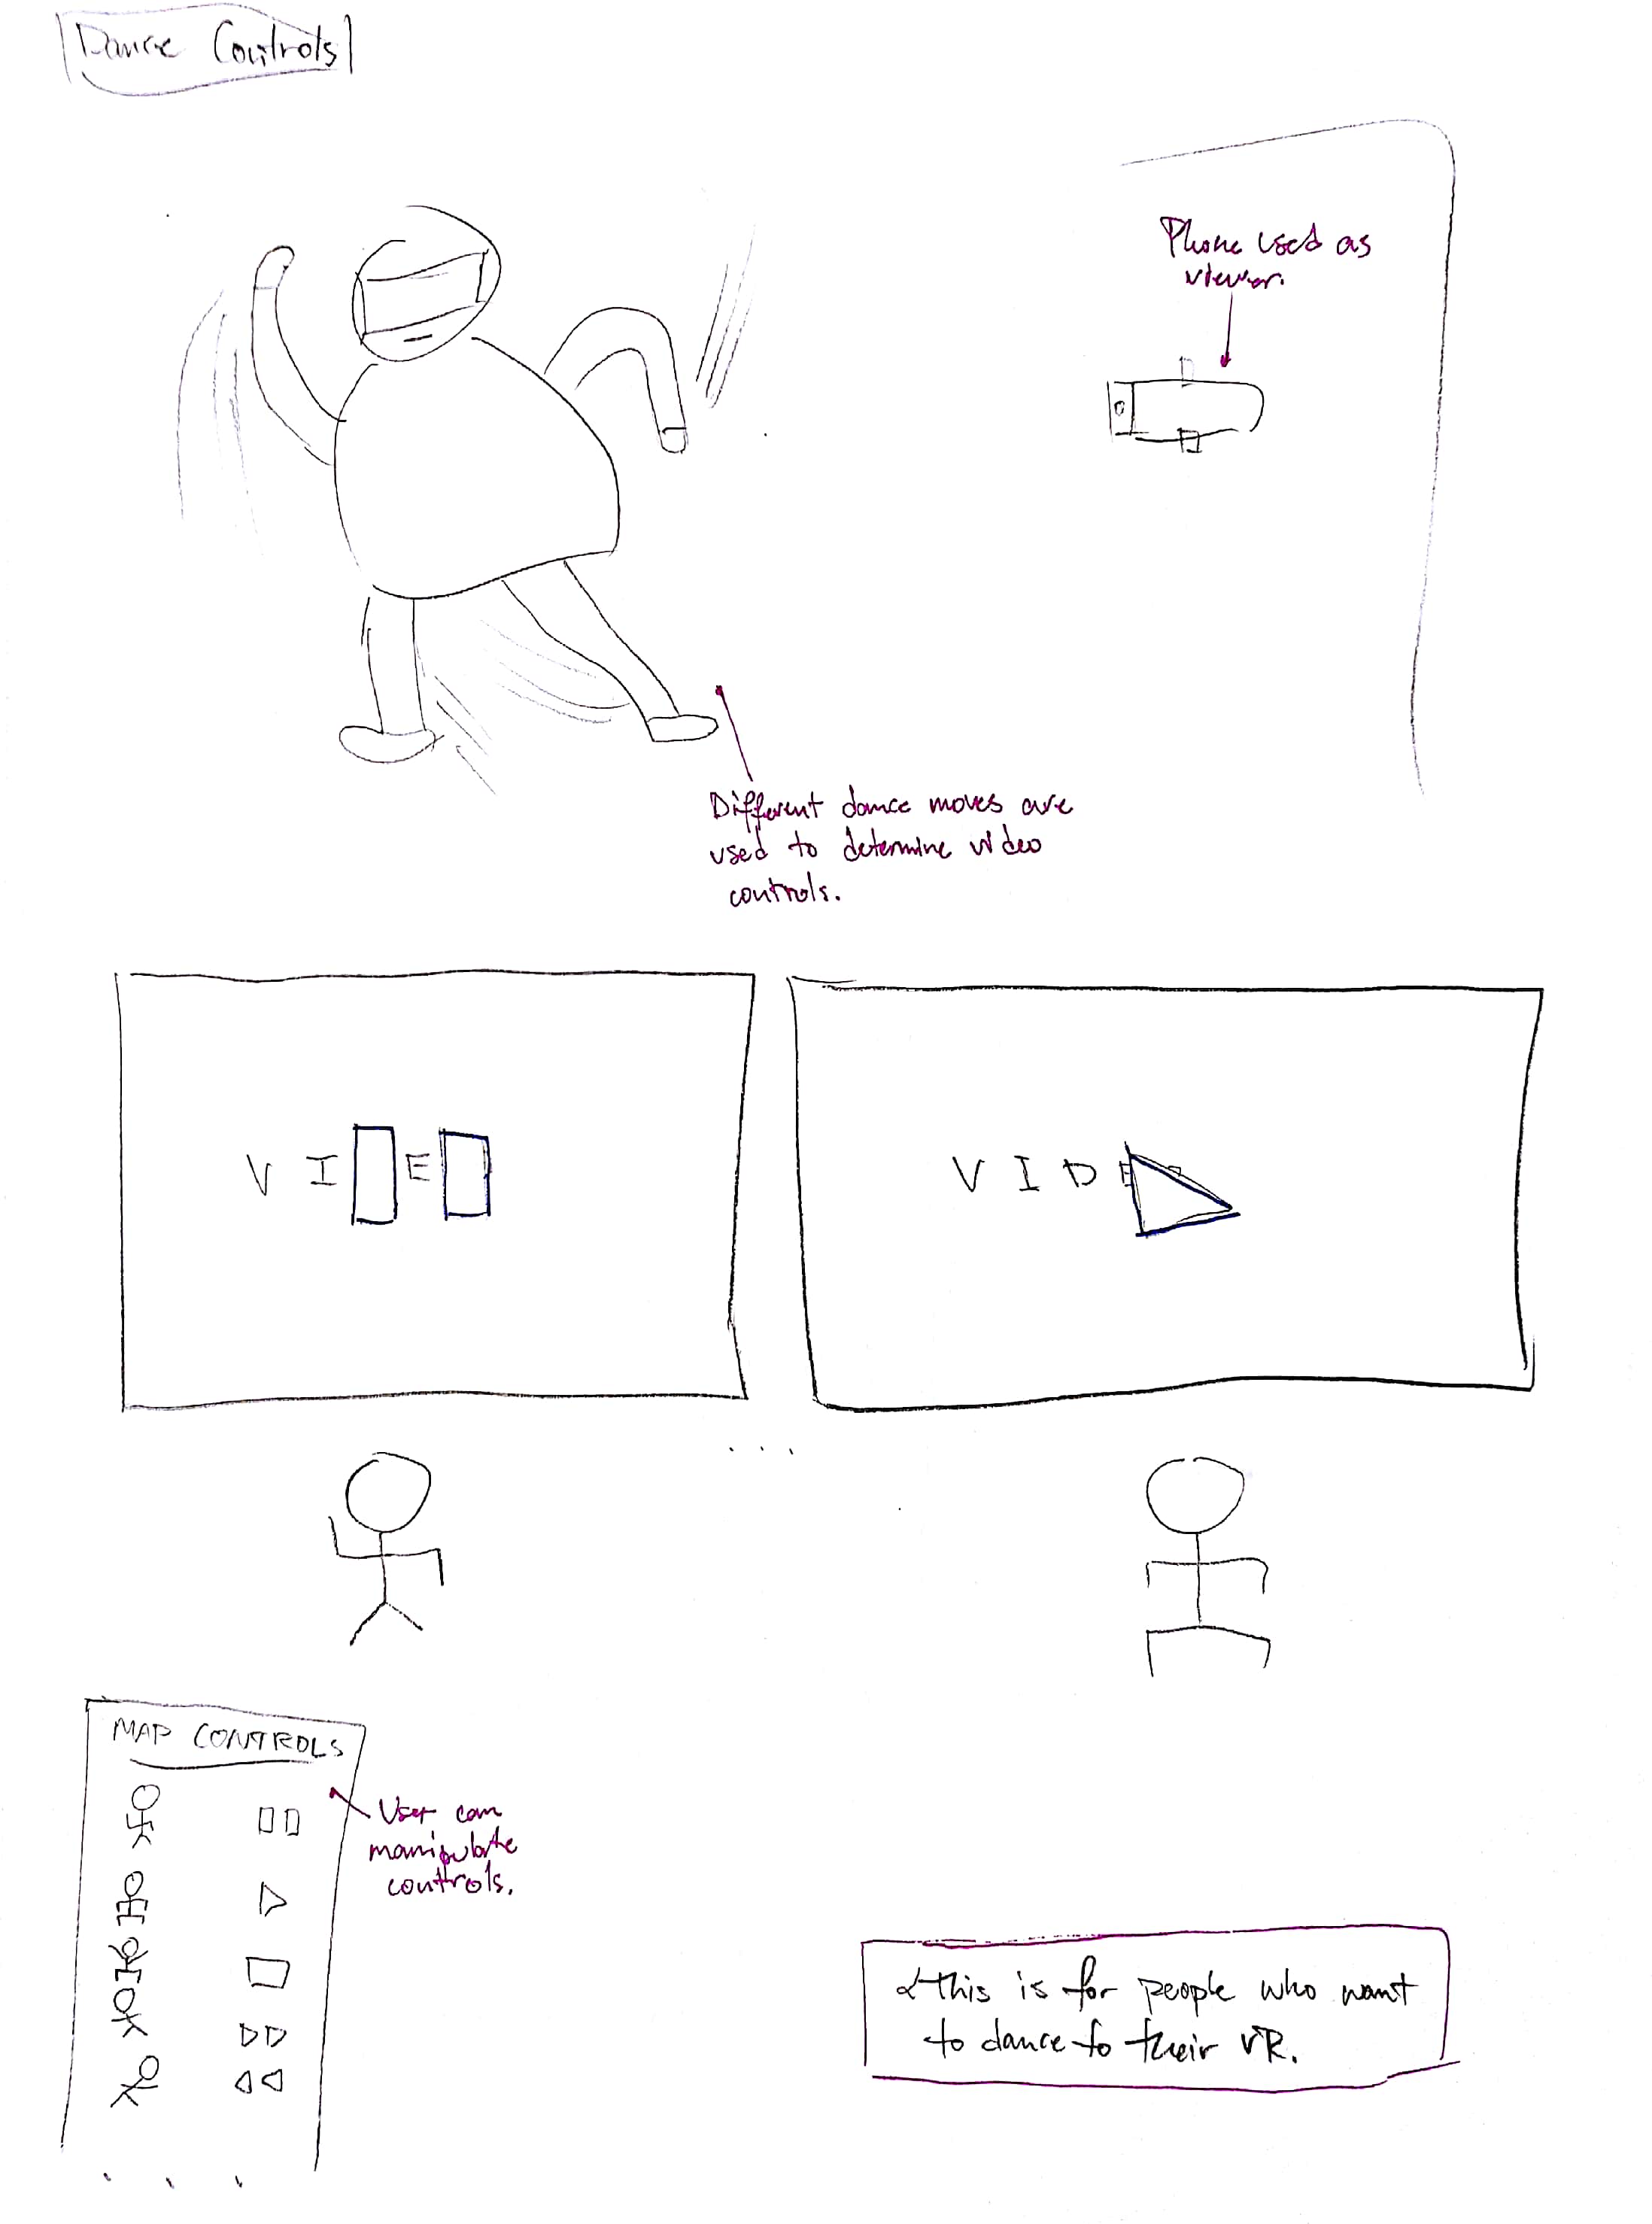 Dance Controls
Phone used as
viewer.
Different dance moves are
used to determine video
controls.
V I E
V I D E
MAP CONTROLS
User can
manipulate
controls.
this is for people who want
to dance to their VR.